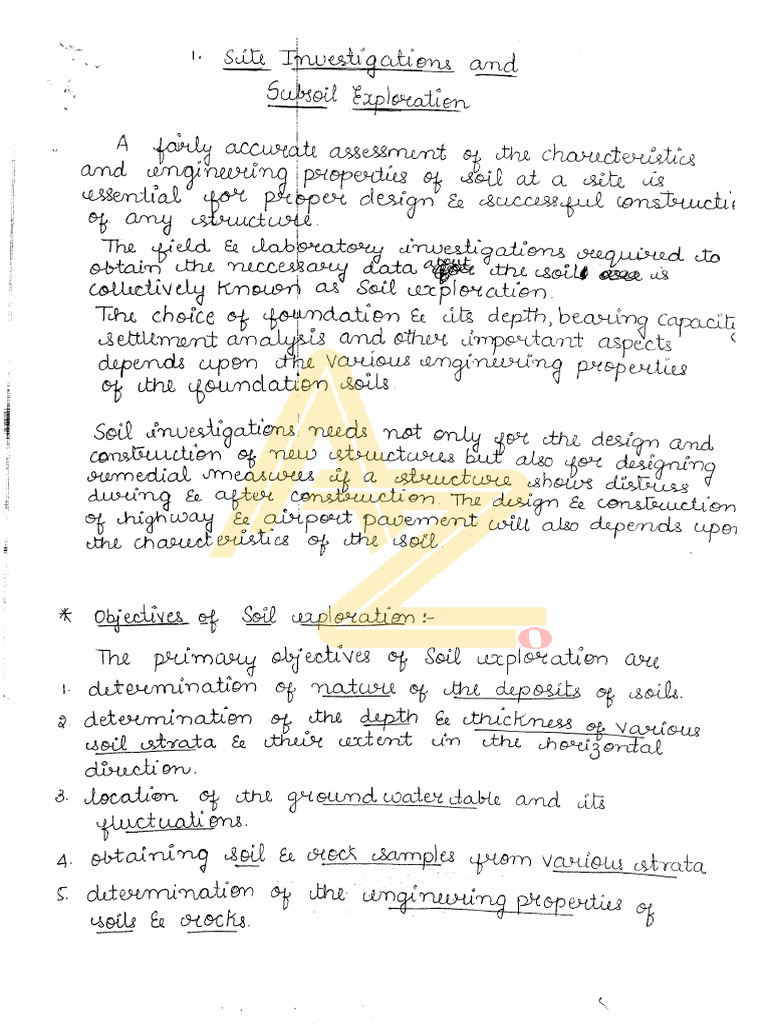 1. Site Investigations and
Subsoil Exploration
A fairly accurate assessment of the charecteristics
and engineering properties of soil at a site is
essential for proper design & successful constructi
of any structure.
The field & laboratory investigations required to
obtain the neccessary data about the soil is
collectively known as Soil exploration.
The choice of foundation & its depth, bearing capacity
settlement analysis and other important aspects
depends upon the various engineering properties
of the foundation soils.
Soil investigations needs not only for the design and
construction of new structures but also for designing
remedial measures if a structure shows distress
during & after construction. The design & construction
of highway & airport pavement will also depends upon
the charecteristics of the soil.
* Objectives of Soil exploration:-
The primary objectives of Soil exploration are
1. determination of nature of the deposits of soils.
2. determination of the depth & thickness of various
soil strata & their extent in the horizontal
direction.
3. location of the ground water table and its
fluctuations.
4. obtaining soil & rock samples from various strata
5. determination of the engineering properties of
soils & rocks.
AZO